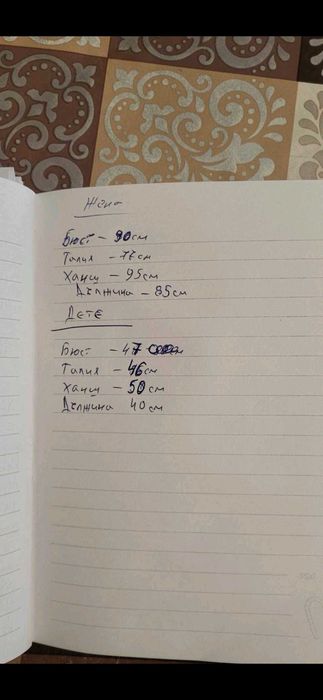 Жена
Бюст – 90 см
Талия – 77 см
Ханш – 95 см
Дължина – 85 см
ДЕТЕ
Бюст – 47
Талия – 46 см
Ханш – 50 см
Дължина 40 см